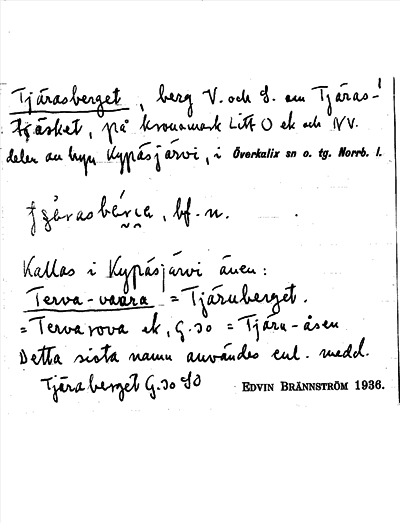 Tjärasberget, berg V. och S. om Tjäras-
träsket, på kronomark Litt O ek och NV.
delen av byn Kypäsjärvi, i Överkalix sn o. tg. Norrb. l.
bf. n.
Kallas i Kypäsjärvi även:
Terva-vaara = Tjäruberget.
= Tervarova ek, G. 30 = Tjäru-åsen
Detta sista namn användes enl. medd.
Tjäraberget G. 30 SO
EDVIN BRÄNNSTRÖM 1936.